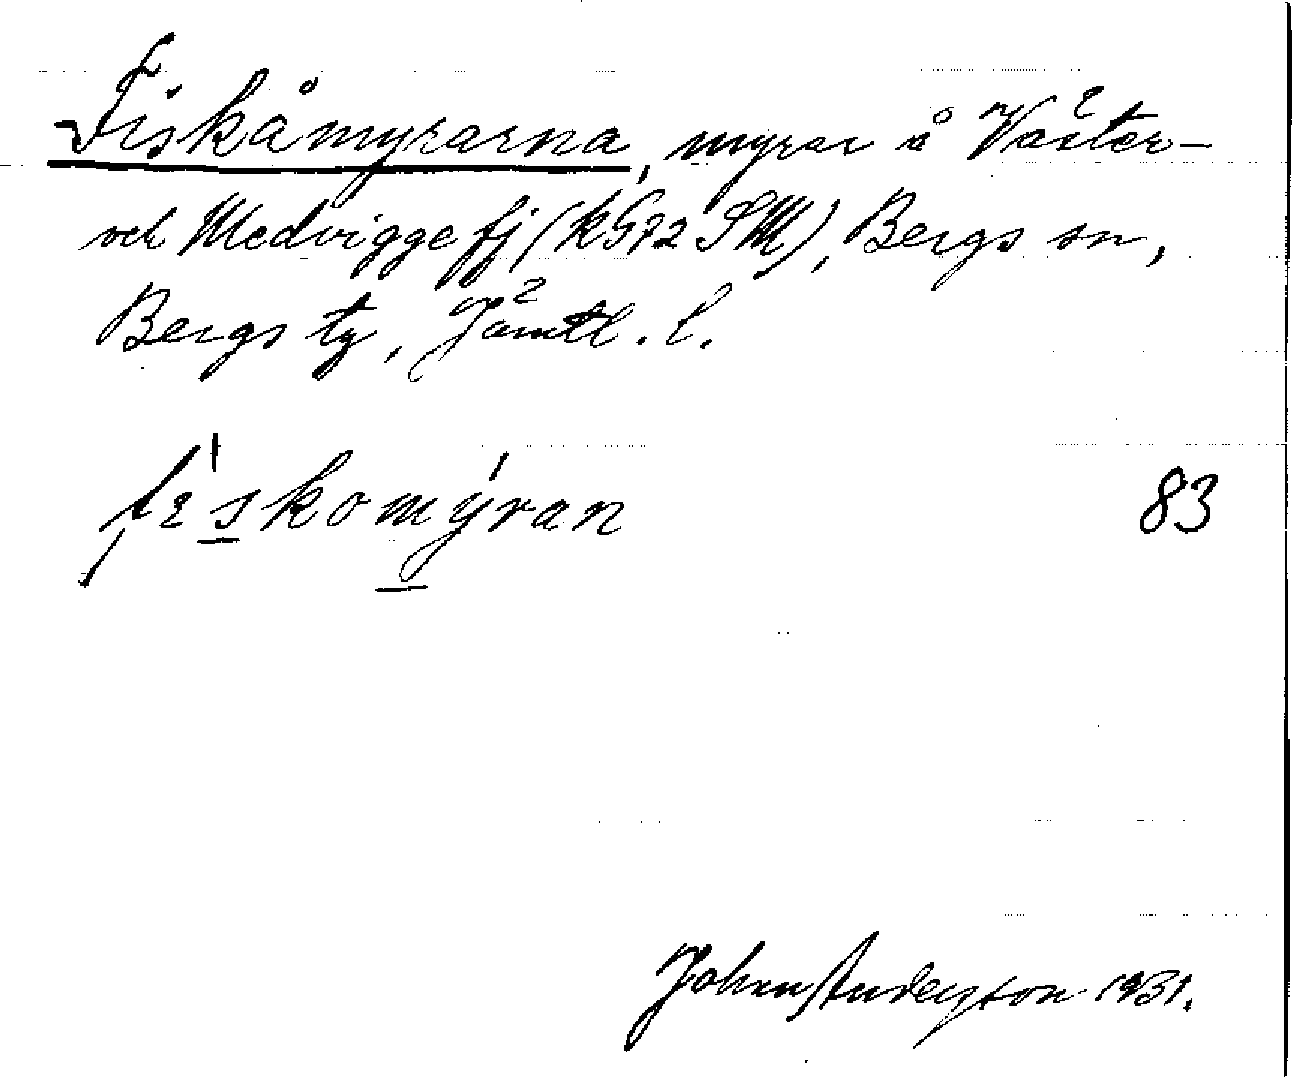 Fiskåmyrarna, myrar å Väster-
och Medviggefj (KG72 SM), Bergs sn,
Bergs tg, Jämtl. l.
fiskomýran 83
Johan Andersson 1931.